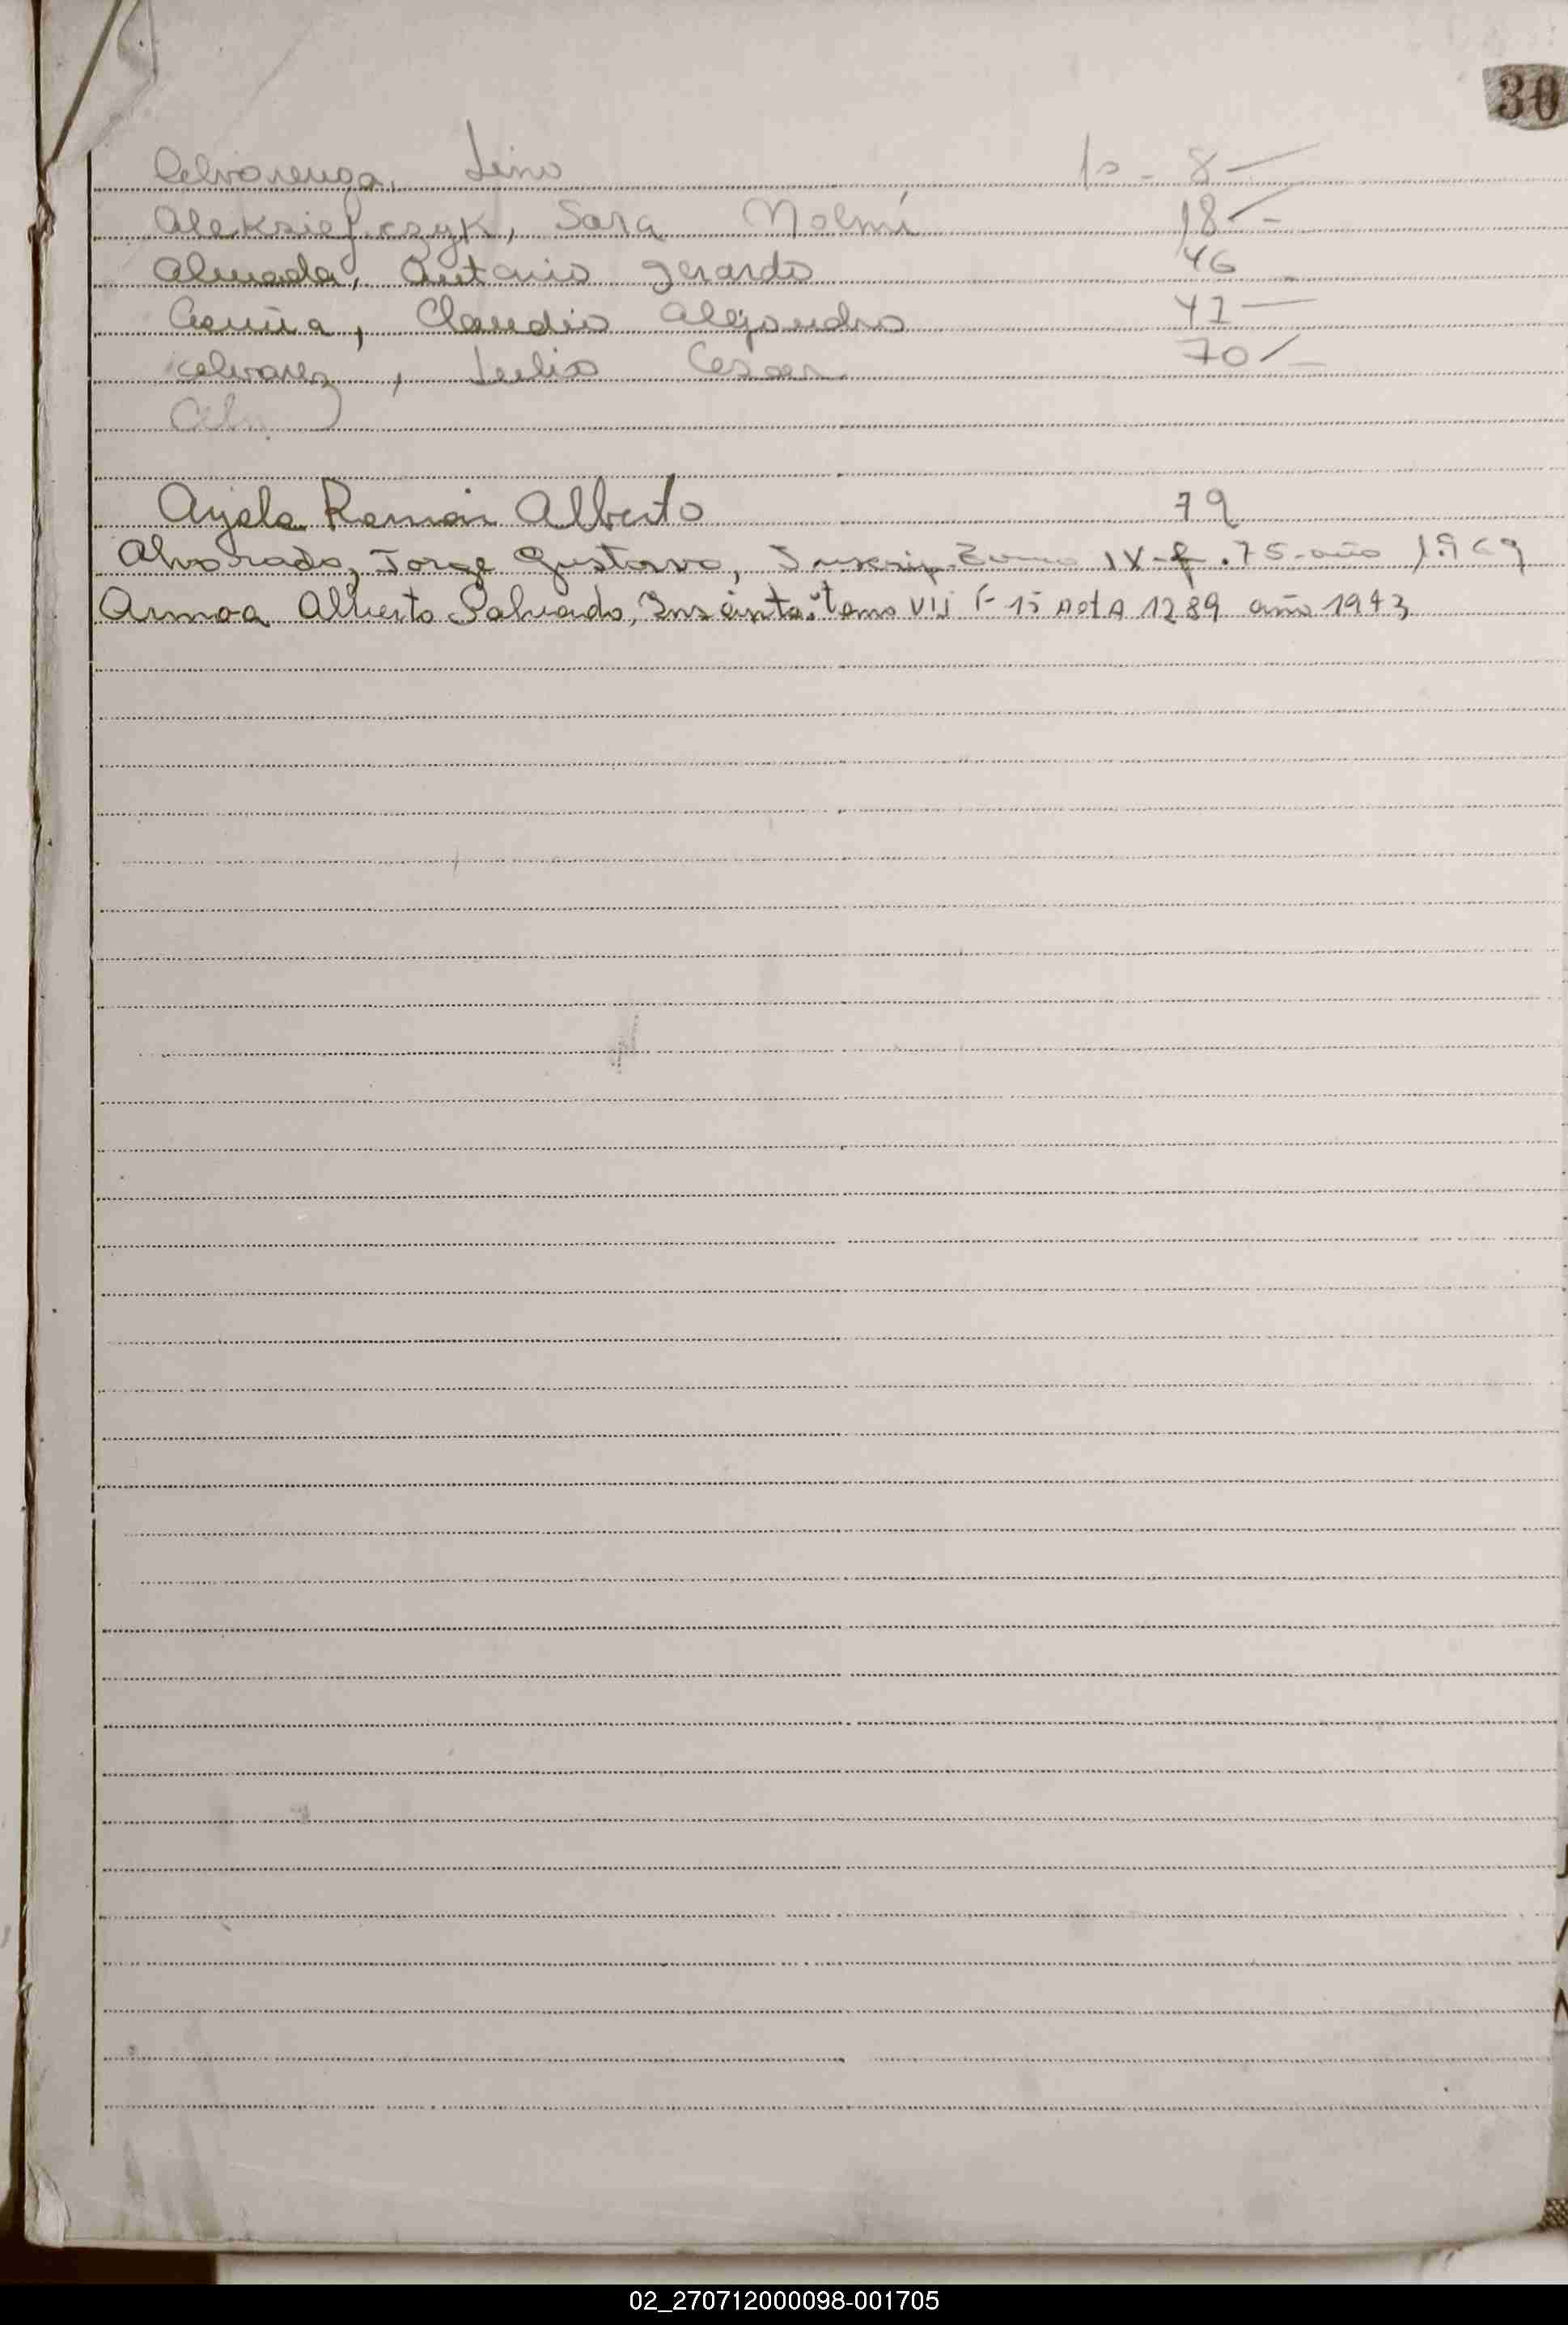 30
Alvarenga, Lino 10 - 8 —
Aleksiejczyk, Sara Noemí 18 —
Almada, Antonio Gerardo 46 -
Acuña, Claudio Alejandro 47 —
Alvarez, Julio Cesar 70 —
Ayala Ramón Alberto 79
Alvarado, Jorge Gustavo, Inscrip. Tomo IX - f. 75 - año 1969
Armoa Alberto Salvado, tomo VII F- 15 Acta 1289 año 1943
02_270712000098-001705